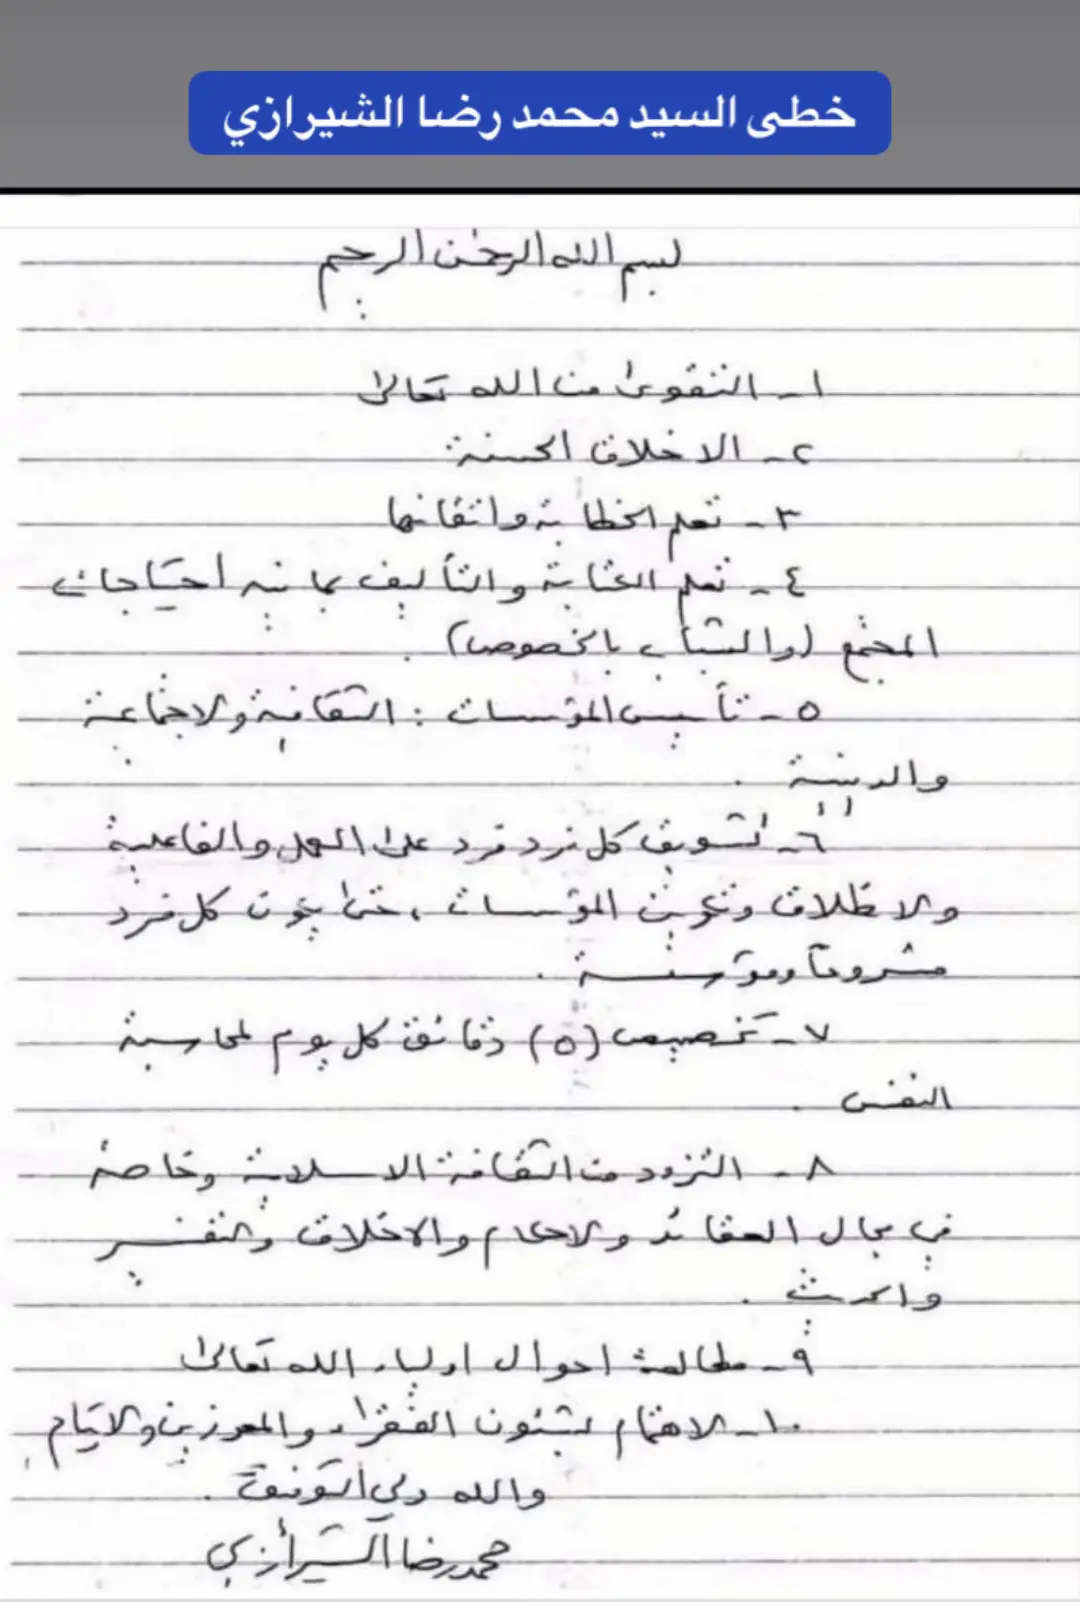 خطى السيد محمد رضا الشيرازي
بسم الله الرحمن الرحيم
١ـ التقوى من الله تعالى
٢ـ الاخلاق الحسنة
٣ـ تعلم الخطابة واتقانها
٤ـ تعلم الكتابة والتأليف بما فيه احتياجات
المجتمع (والشباب بالخصوص) .
٥ـ تأسيس المؤسسات : الثقافية والاجتماعية
والدينية .
٦ـ تشويق كل فرد فرد على العمل والفاعلية
والانطلاق وتكوين المؤسسات ، حتى يكون كل فرد
مشروعاً ومؤسسة .
٧ـ تخصيص (٥) دقائق كل يوم لمحاسبة
النفس .
٨ـ التزود من الثقافة الاسلامية وخاصة
في مجال العقائد والاحكام والاخلاق والتفسير
والحديث .
٩ـ مطالعة احوال اولياء الله تعالى
١٠ـ الاهتمام بشئون الفقراء والمعوزين والايتام
والله ولي التوفيق .
محمد رضا الشيرازي